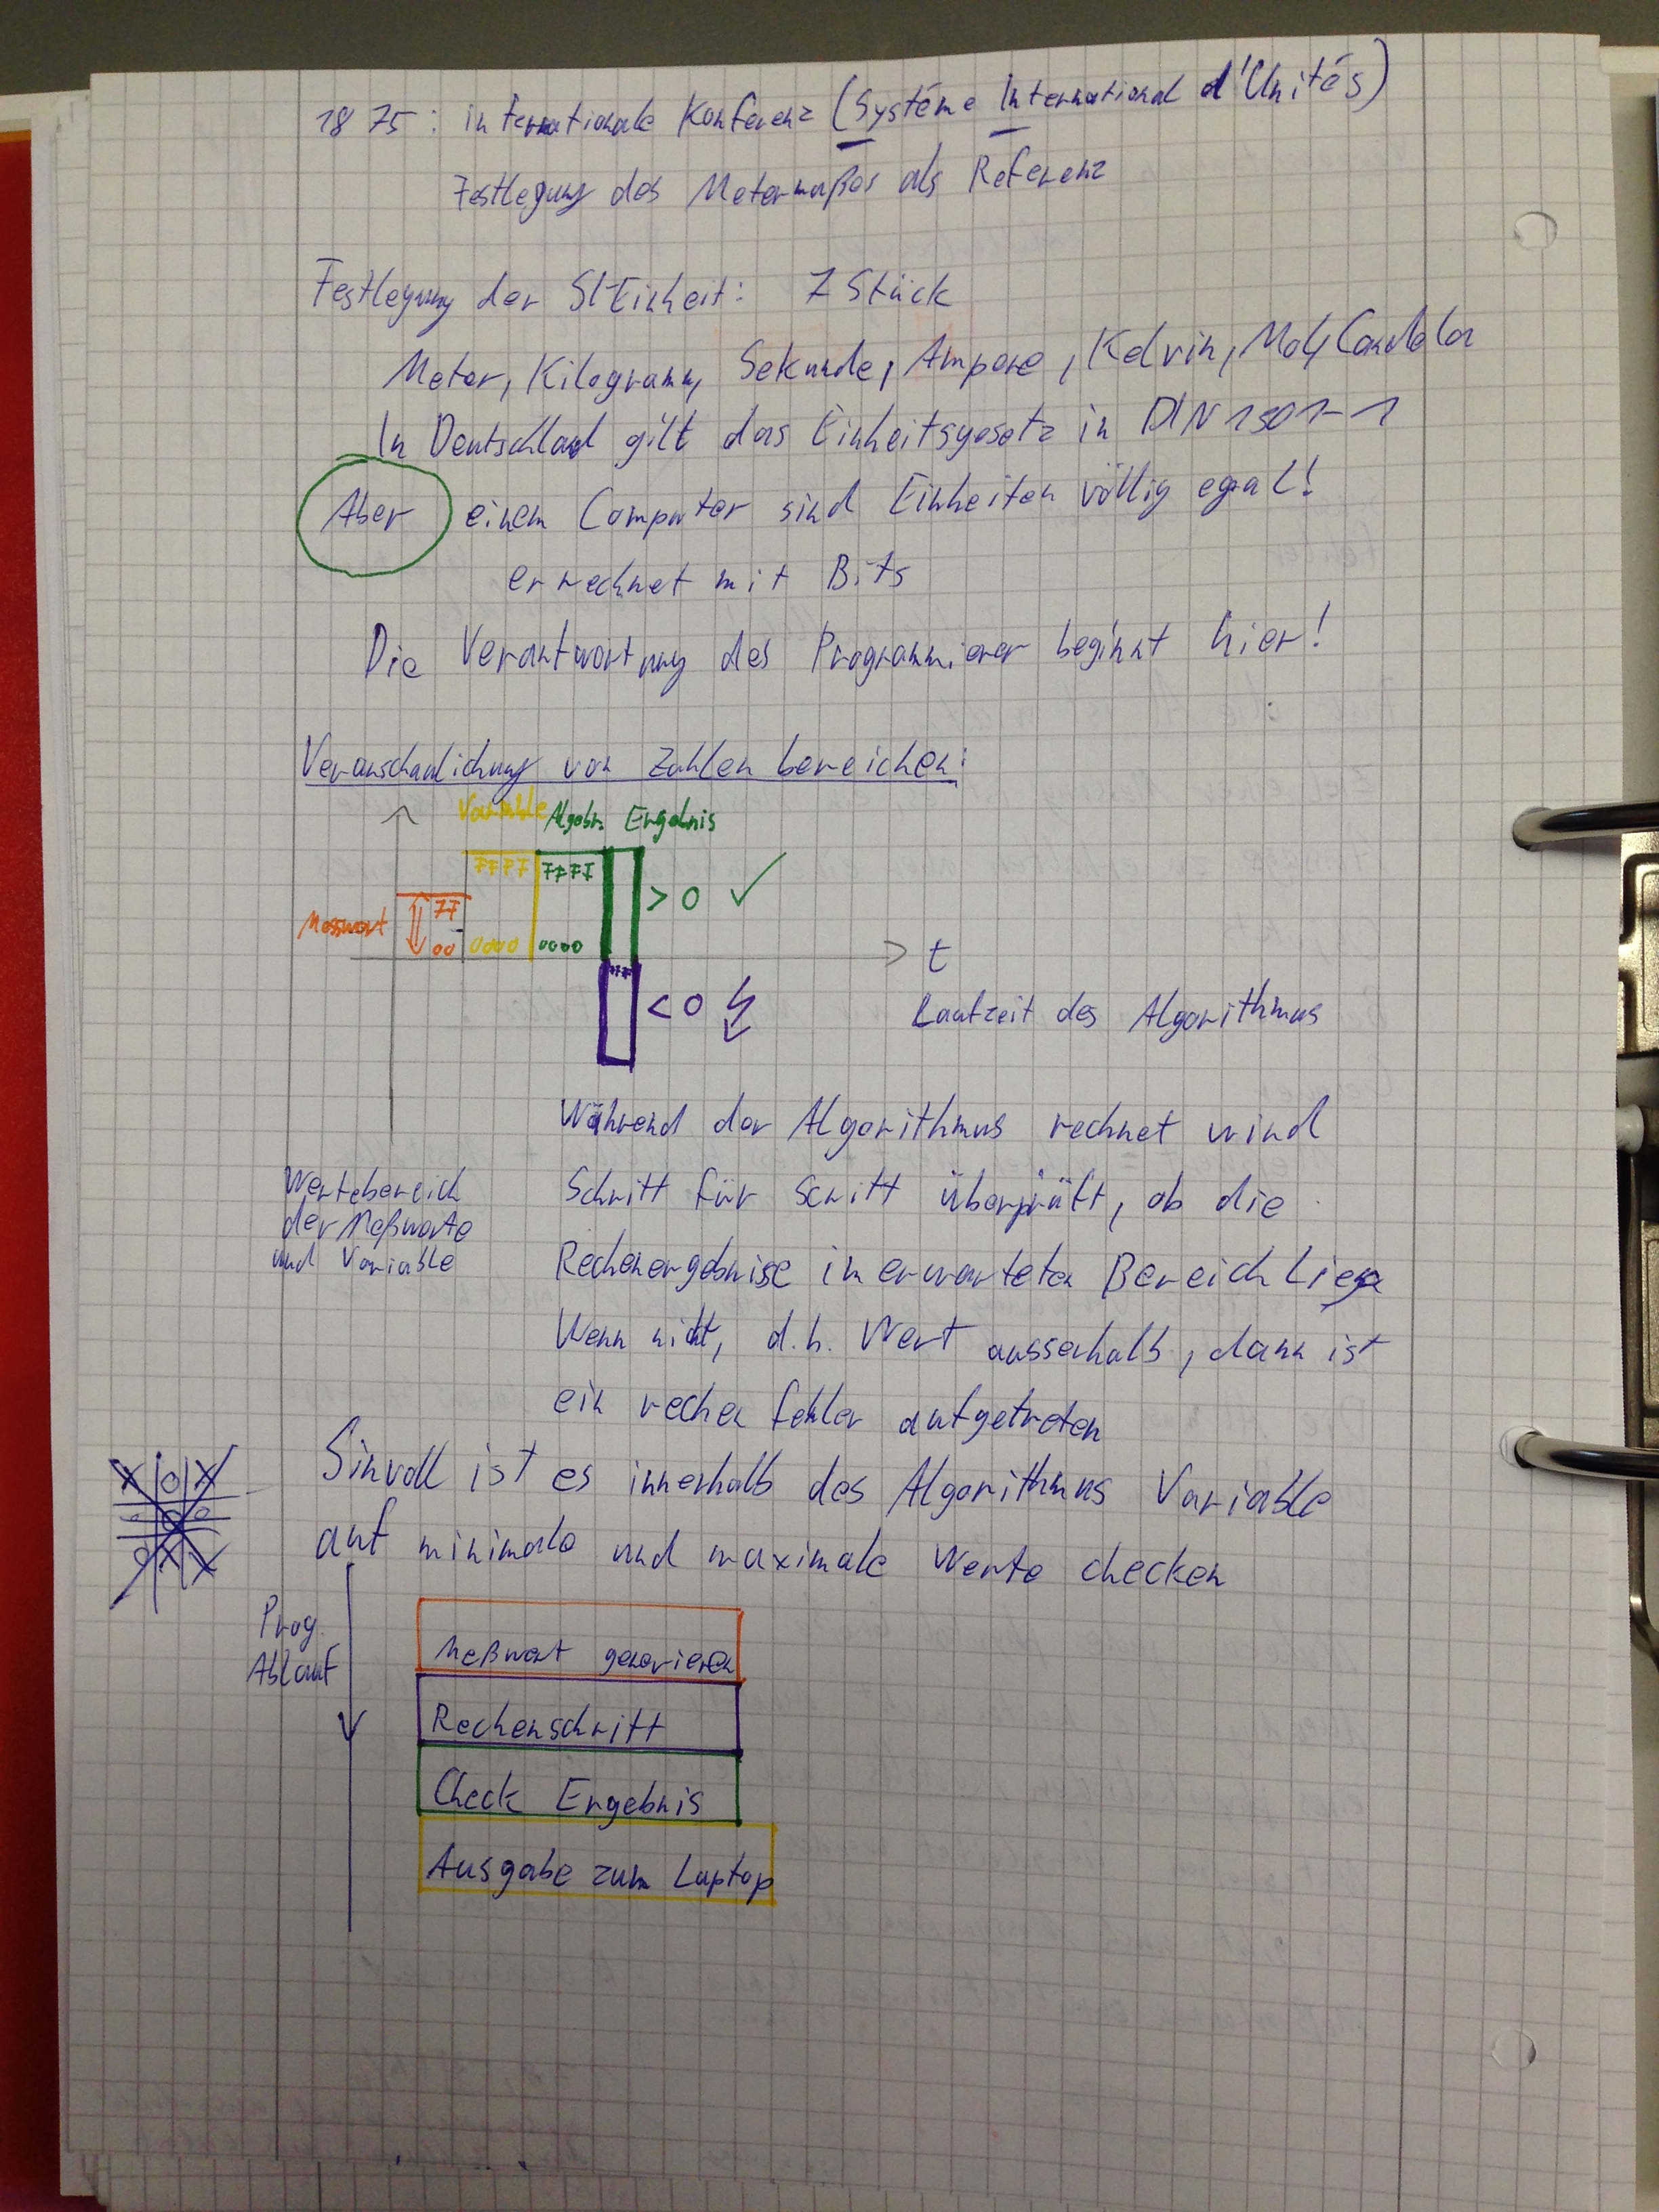 1875: internationale Konferenz (Système International d'Unités)
Festlegung des Metermaßes als Referenz
Festlegung der SI-Einheit: 7 Stück
Meter, Kilogramm, Sekunde, Ampere, Kelvin, Mol, Candela
In Deutschland gilt das Einheitsgesetz in DIN 1301-1
Aber einem Computer sind Einheiten völlig egal!
er rechnet mit Bits
Die Verantwortung des Programmierer beginnt hier!
Veranschaulichung von Zahlenbereichen:
Variable Algebr. Ergebnis
FFFF FFFF
> 0 ✓
Messwert FF
00 0000 0000
t
FF
< 0
Laufzeit des Algorithmus
Während der Algorithmus rechnet wird
Schritt für Scritt überprüft, ob die
Rechenergebnise im erwarteten Bereich liegen
Wenn nicht, d.h. Wert ausserhalb, dann ist
ein rechen fehler aufgetreten
Wertebereich
der Meßwerte
und Variable
Sinvoll ist es innerhalb des Algorithmus Variable
auf minimale und maximale Werte checken
X O X
O O O
O X X
Prog.
Ablauf
Meßwert generieren
Rechenschritt
Check Ergebnis
Ausgabe zum Laptop